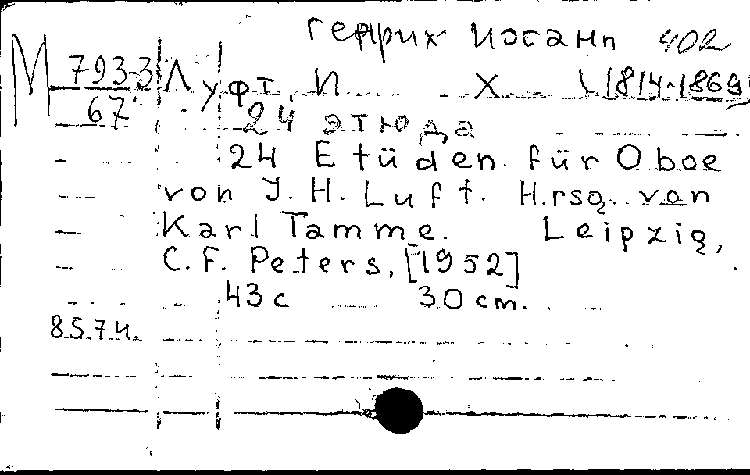 Генрих Иосанн 402
М 793-3 Луфт, И. Х. (1814-1869)
67 24 этюда
24 Etüden für Oboe
von J. H. Luft. Hrsg. von
Karl Tamme. Leipzig,
C. F. Peters, [1952]
43 с 30 cm.
85.74.